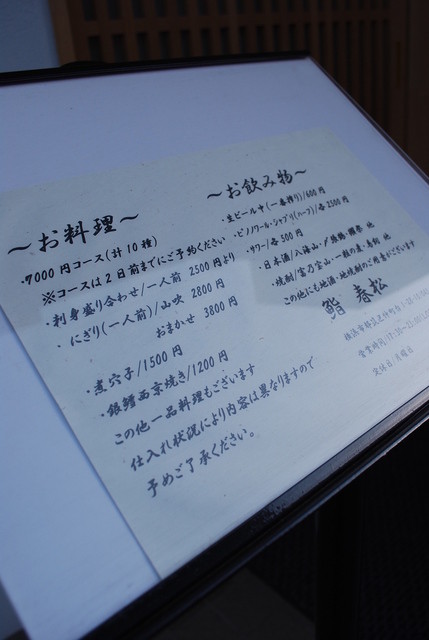 ～お料理～
・7000円コース(計10種)
※コースは2日前までにご予約ください
・刺身盛り合わせ/一人前 2500円より
・にぎり(一人前)/山吹 2800円
おまかせ 3800円
・煮穴子/1500円
・銀鱈西京焼き/1200円
この他一品料理もございます
仕入れ状況により内容は異なりますので
予めご了承ください。
～お飲み物～
・生ビール中(一番搾り)/600円
・ピノノワール・シャブリ(ハーフ)/各2500円
・サワー/各500円
・日本酒/八海山・〆張鶴・獺祭 他
・焼酎/富乃宝山・一粒の麦・
この他にも地酒・地焼酎のご用意がございます
鮨 春松
営業時間/17:30~23:00
定休日/月曜日